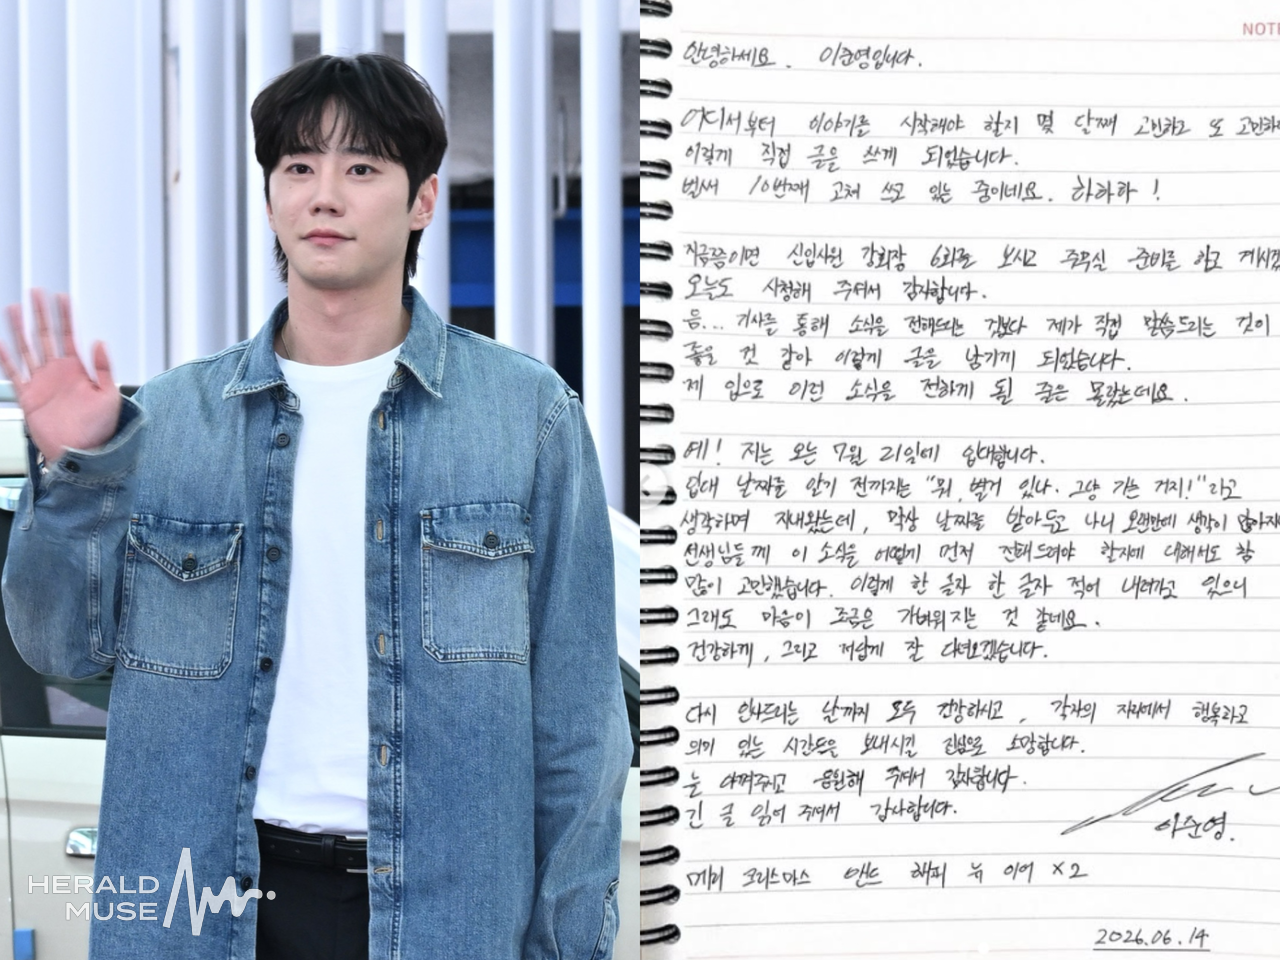 HERALD
MUSE
NOTE
안녕하세요. 이준영입니다.
어디서부터 이야기를 시작해야 할지 몇 달째 고민하고 또 고민하
이렇게 직접 글을 쓰게 되었습니다.
벌써 10번째 고쳐 쓰고 있는 중이네요. 하하하!
지금쯤이면 신입사원 강회장 6회를 보시고 주무실 준비를 하고 계시겠
오늘도 시청해 주셔서 감사합니다.
음... 기사를 통해 소식을 전해드리는 것보다 제가 직접 말씀드리는 것이
좋을 것 같아 이렇게 글을 남기게 되었습니다.
제 입으로 이런 소식을 전하게 될 줄은 몰랐는데요.
예! 저는 오는 7월 21일에 입대합니다.
입대 날짜를 알기 전까지는 "뭐, 별거 있나. 그냥 가는 거지!"라고
생각하며 지내왔는데, 막상 날짜를 받아두고 나니 오랜만에 생각이 많아지
선생님들께 이 소식을 어떻게 먼저 전해드려야 할지에 대해서도 참
많이 고민했습니다. 이렇게 한 글자 한 글자 적어 내려가고 있으니
그래도 마음이 조금은 가벼워지는 것 같네요.
건강하게, 그리고 저답게 잘 다녀오겠습니다.
다시 인사드리는 날까지 모두 건강하시고, 각자의 자리에서 행복하고
의미 있는 시간들을 보내시길 진심으로 소망합니다.
늘 아껴주시고 응원해 주셔서 감사합니다.
긴 글 읽어 주셔서 감사합니다.
이준영.
메리 크리스마스 앤드 해피 뉴 이어 x2
2026.06.14